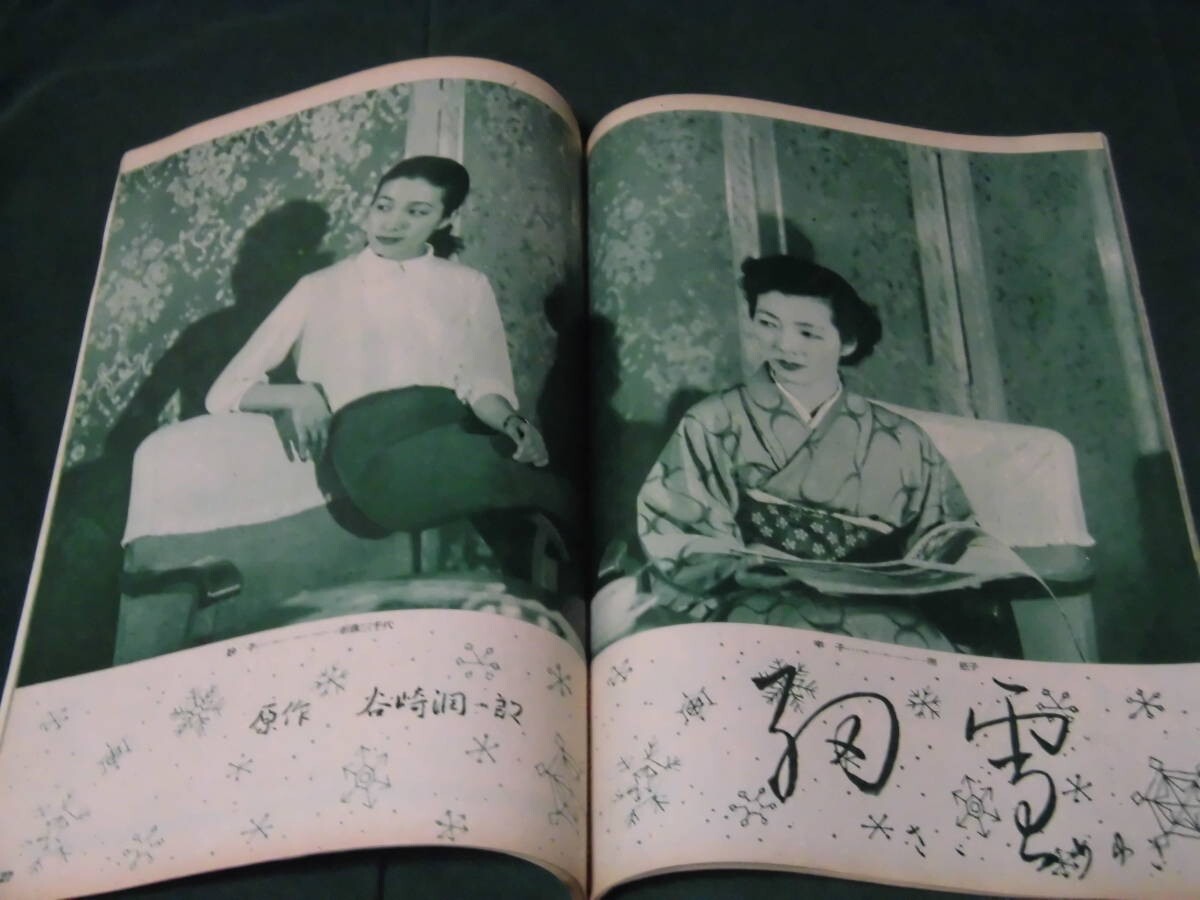 妙子
三千代
原作 谷崎潤一郎
幸子
子
細雪
ささめゆき